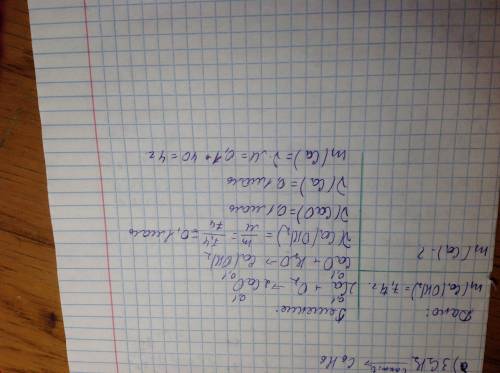 а) 3C₂H₂ → C₆H₆
Дано:
m(Ca(OH)₂) = 7,4 г
m(Ca) - ?
Решение:
2Ca + O₂ → 2CaO
CaO + H₂O → Ca(OH)₂
ν(Ca(OH)₂) = m/M = 7,4/74 = 0,1 моль
ν(CaO) = 0,1 моль
ν(Ca) = 0,1 моль
m(Ca) = ν · M = 0,1 * 40 = 4 г